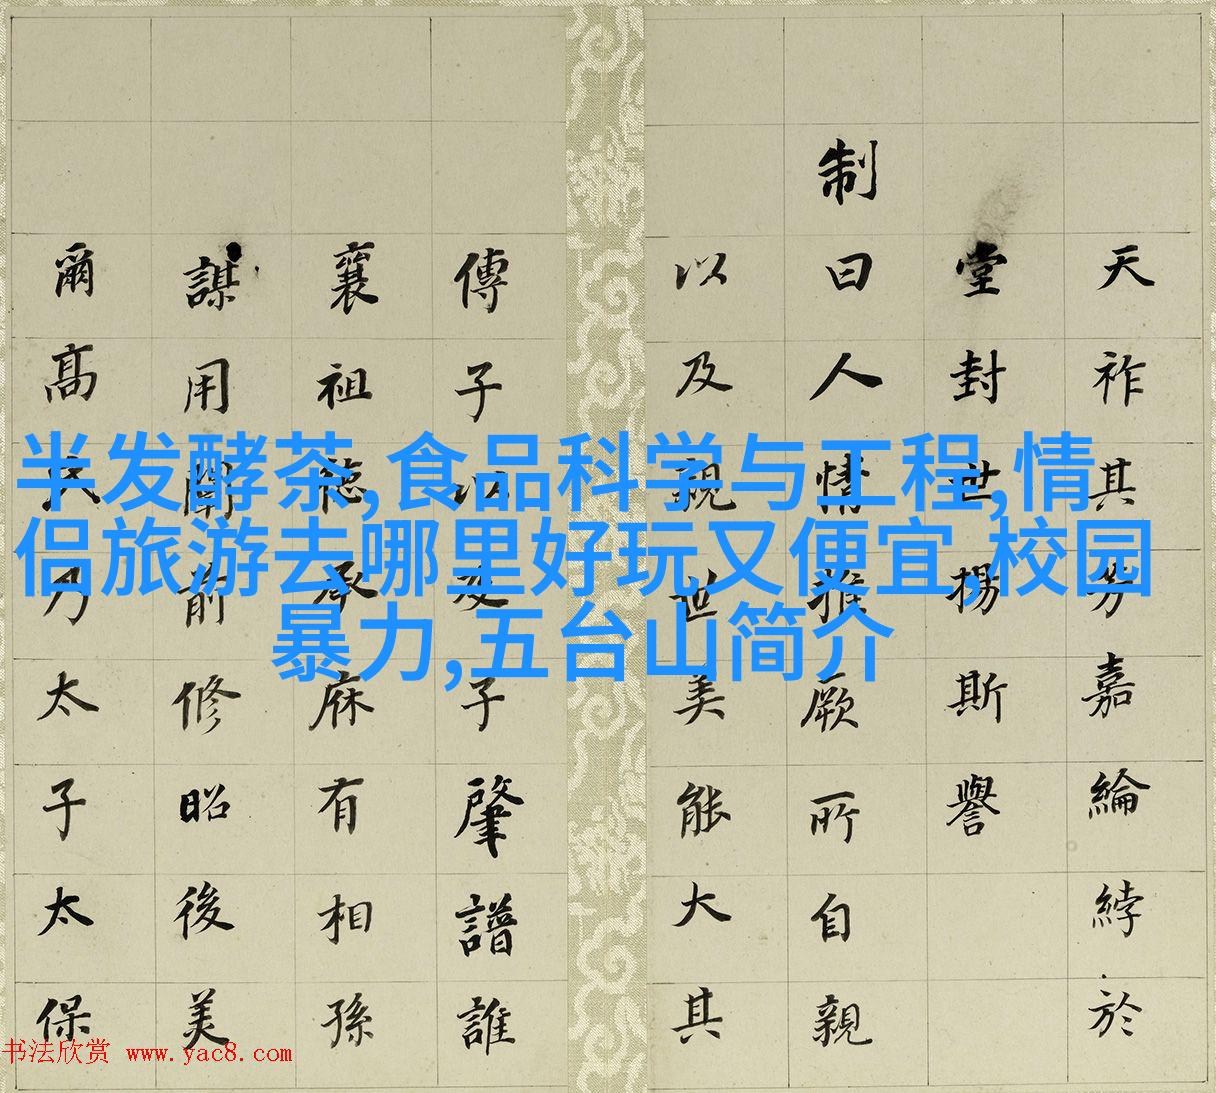 半发酵茶,食品科学与工程,情
侣旅游去哪里好玩又便宜,校园
暴力,五台山简介
天祚其芳嘉綸綍於
堂封世揚斯譽
制曰人情推厥所自親
以及親世美能大其
傳子以及子肇譜誰
襄祖德承庥有相孫
謀用開前修昭後美
爾高氏乃太子太保
书法欣赏 www.yac8.com